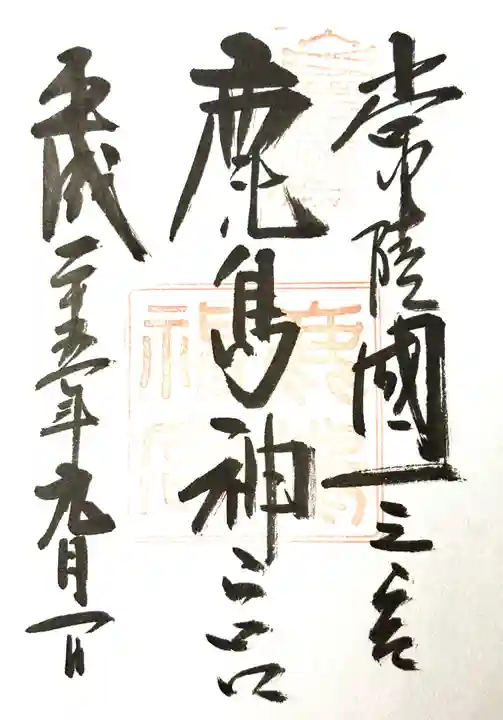 常陸國一之宮
鹿島神宮
平成二十五年九月一日